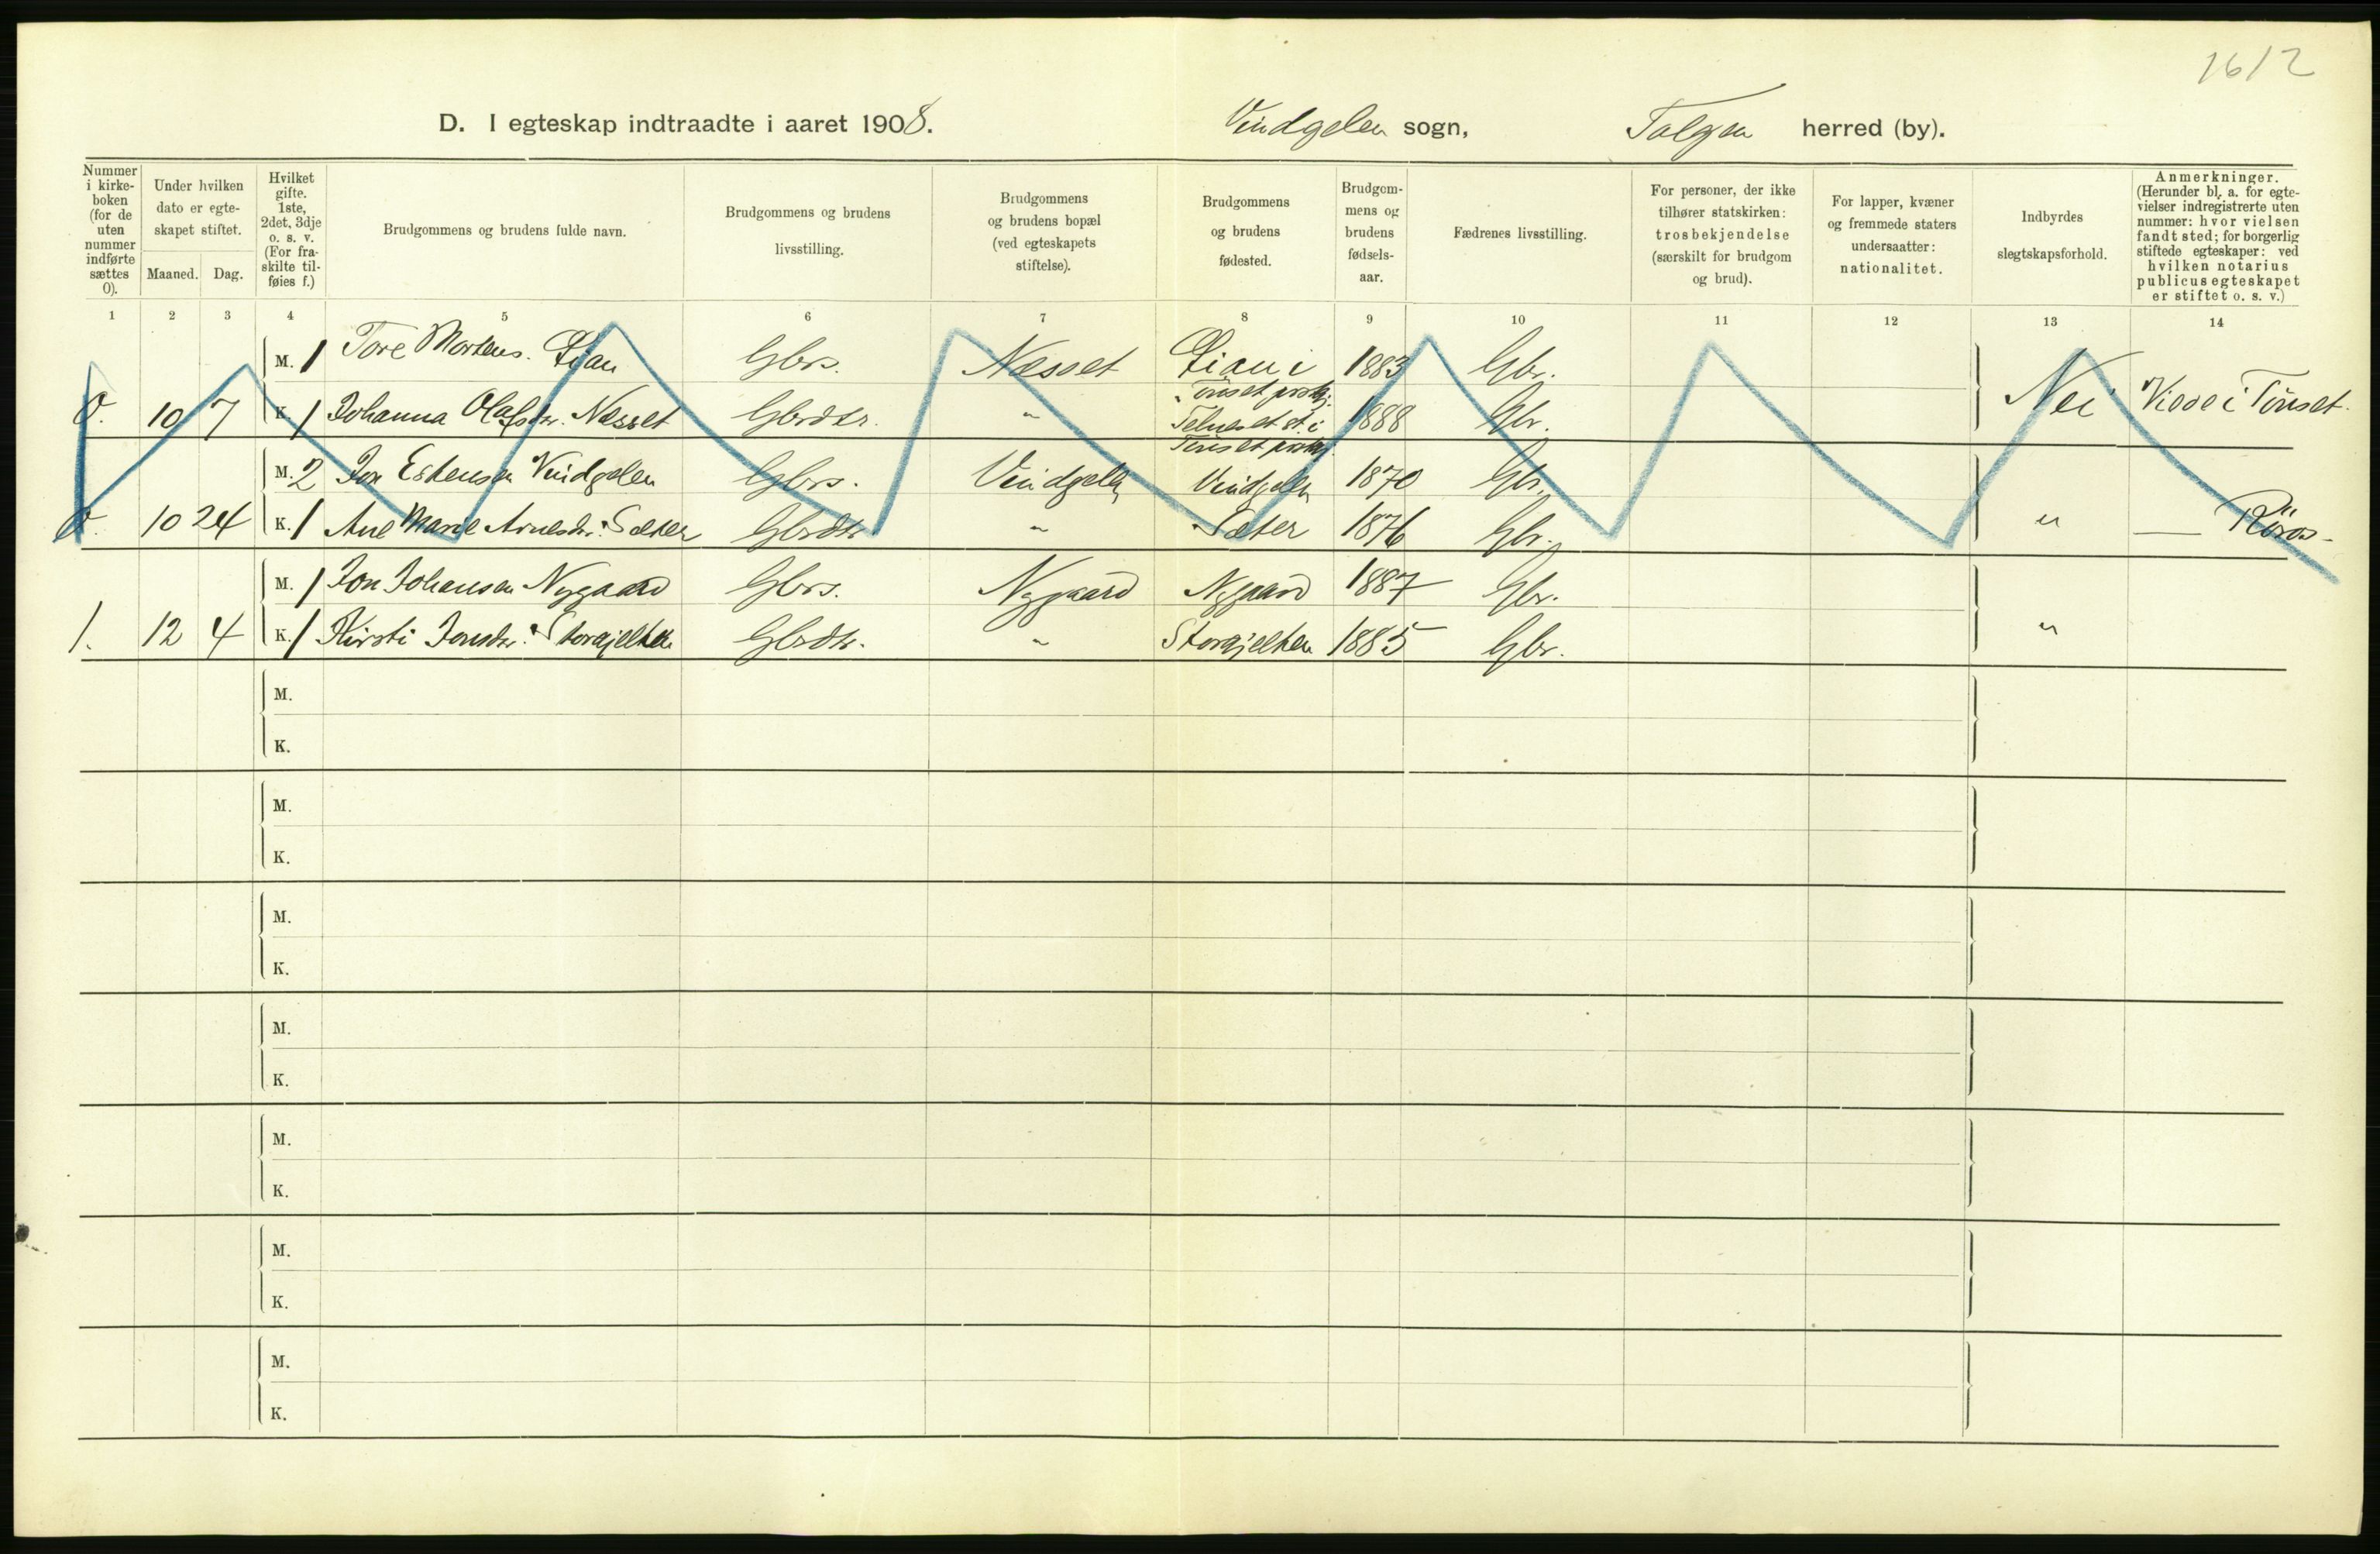 1612
D. I egteskap indtraadte i aaret 1908. Vindgelen sogn, Tolgen herred (by).
Nummer i kirkeboken (for de uten nummer indførte sættes 0).
Under hvilken dato er egteskapet stiftet.
Maaned. Dag.
Hvilket gifte. 1ste, 2det, 3dje o. s. v. (For fraskilte tilføies f.)
Brudgommens og brudens fulde navn.
Brudgommens og brudens livsstilling.
Brudgommens og brudens bopæl (ved egteskapets stiftelse).
Brudgommens og brudens fødested.
Brudgommens og brudens fødselsaar.
Fædrenes livsstilling.
For personer, der ikke tilhører statskirken: trosbekjendelse (særskilt for brudgom og brud).
For lapper, kvæner og fremmede staters undersaatter: nationalitet.
Indbyrdes slegtskapsforhold.
Anmerkninger. (Herunder bl. a. for egtevielser indregistrerte uten nummer: hvor vielsen fandt sted; for borgerlig stiftede egteskaper: ved hvilken notarius publicus egteskapet er stiftet o. s. v.)
1 2 3 4 5 6 7 8 9 10 11 12 13 14
M. 1 Tore Mortens. Lian Gbrs. Næsset Lian i Tönset prstgj. 1883 Gbr.
0. 10 7 K. 1 Johanna Olafsdr. Næsset Gbrdtr. " Tönset prstgj. 1888 Gbr. Nei Viede i Tönset.
M. 2 Jon Estensen Vindgelen Gbrs. Vindgelen Vindgelen 1870 Gbr.
0. 10 24 K. 1 Ane Marie Arnesdr. Sæter Gbrdtr. " Sæter 1876 Gbr. " — Röros -
M. 1 Jon Johansen Nygaard Gbrs. Nygaard Nygaard 1887 Gbr.
1. 12 4 K. 1 Kirsti Jonsdr. Storajelten Gbrdtr. " Storajelten 1885 Gbr. "
M.
K.
M.
K.
M.
K.
M.
K.
M.
K.
M.
K.
M.
K.